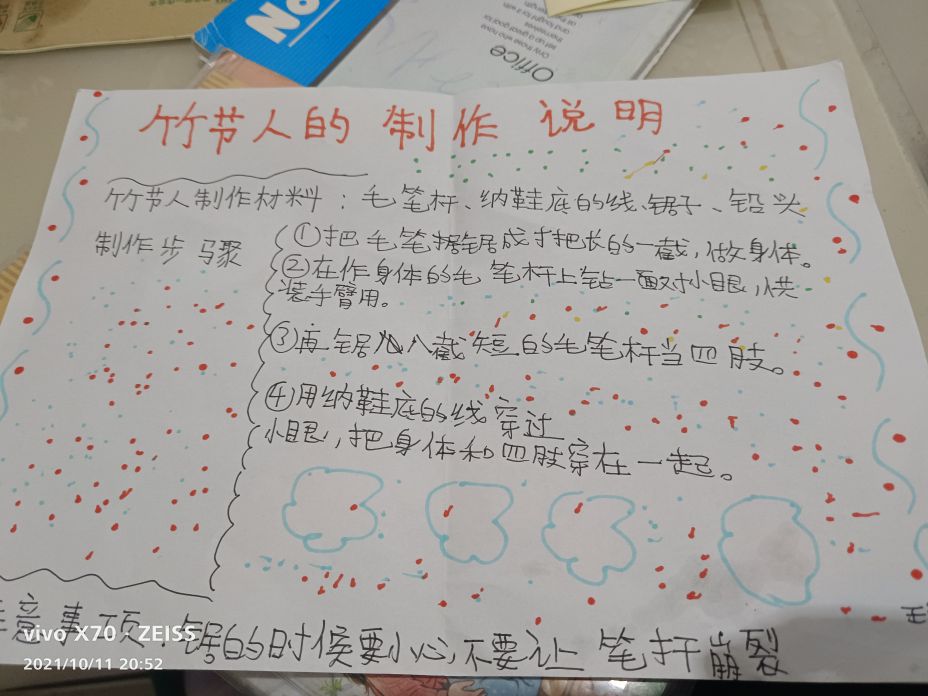 No
Office
Only those who have
set up a great goal for
themselves
and fought for it with
竹节人的 制作 说明
竹节人制作材料：毛笔杆、纳鞋底的线、锯子、铅头
制作步骤
①把毛笔锯锯成寸把长的一截，做身体。
②在作身体的毛笔杆上钻一面对小眼，供
装手臂用。
③再锯八截短的毛笔杆当四肢。
④用纳鞋底的线穿过
小眼，把身体和四肢穿在一起。
意事项：锯的时候要小心，不要让笔杆崩裂
vivo X70 · ZEISS
2021/10/11 20:52